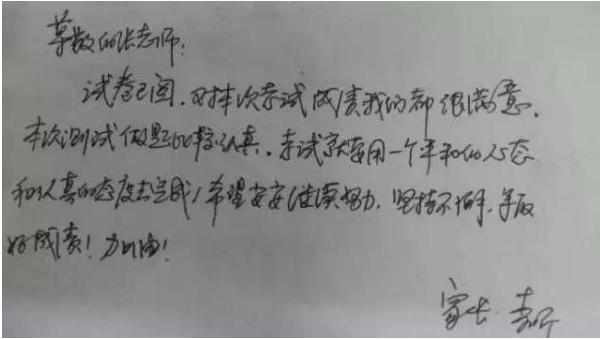 尊敬的张老师:
试卷已阅,对本次考试成绩我们都很满意。
本次测试做题比较认真。考试就要用一个平和的心态
和认真的态度去完成!希望安安继续努力,坚持不懈,争取
好成绩!加油!
家长 李